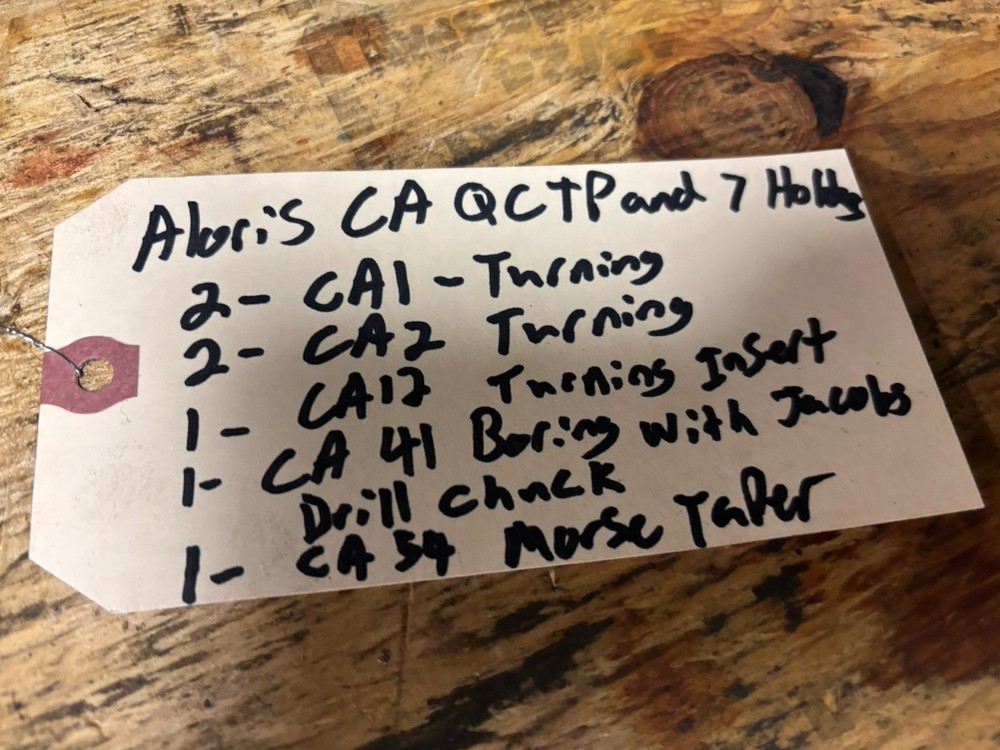 Aloris CA QCTP and 7 Holders
2- CA1 - Turning
2- CA2 Turning
1- CA12 Turning Insert
1- CA 41 Boring with Jacobs
Drill chuck
1- CA 54 Morse Taper